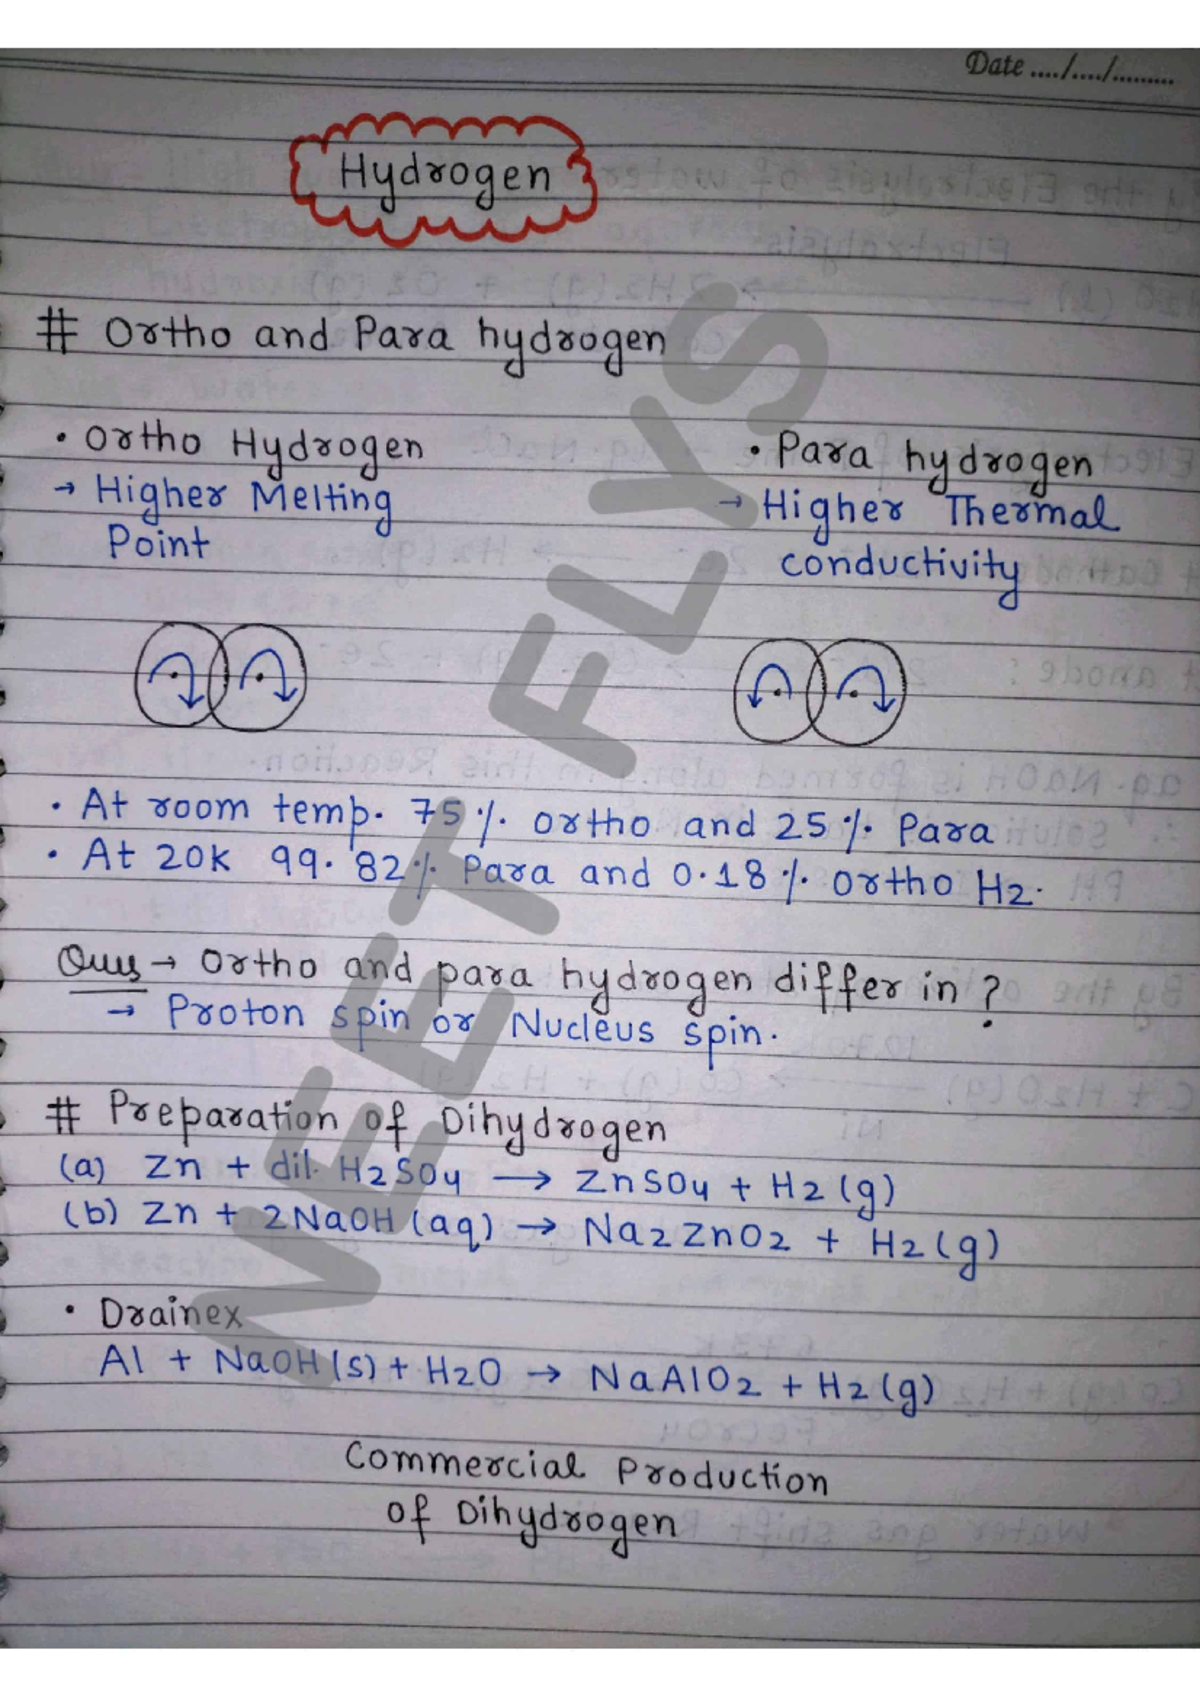 Date ..../..../.........
Hydrogen
# Ortho and Para hydrogen
• Ortho Hydrogen
→ Higher Melting
Point
• Para hydrogen
→ Higher Thermal
conductivity
• At room temp. 75%. ortho and 25%. Para
• At 20K 99.82%. Para and 0.18%. ortho H2.
Ques → Ortho and para hydrogen differ in ?
→ Proton spin or Nucleus spin.
# Preparation of Dihydrogen
(a) Zn + dil. H2SO4 → ZnSO4 + H2 (g)
(b) Zn + 2NaOH (aq) → Na2ZnO2 + H2 (g)
• Drainex
Al + NaOH (s) + H2O → NaAlO2 + H2 (g)
Commercial Production
of Dihydrogen
NEET FLYS